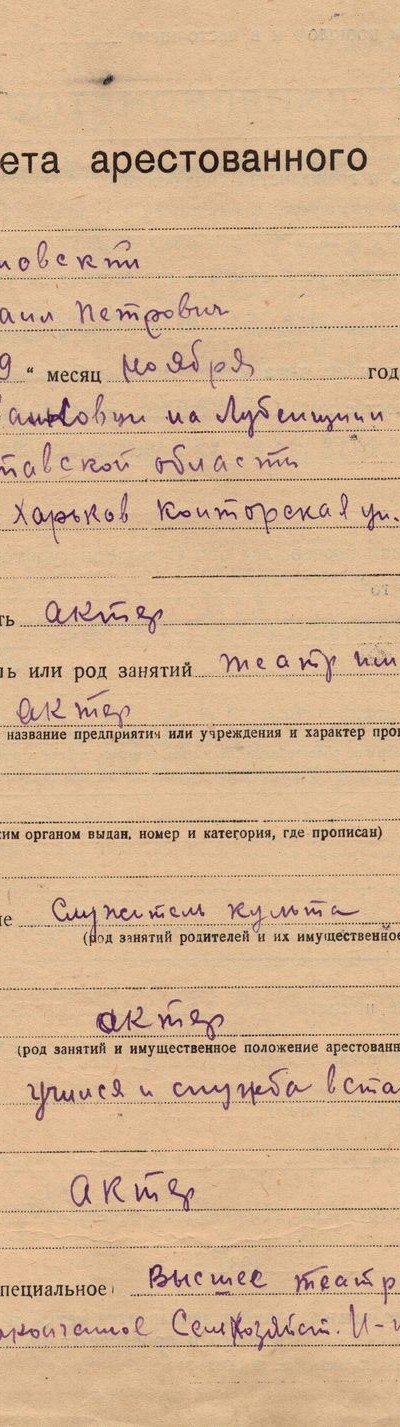 ета арестованного
новский
аил Петрович
9 " месяц Ноября год
на Лубенщини
тавской области
Харьков Конторская ул.
ть актер
ль или род занятий театр им
актер
название предприятия или учреждения и характер про
ким органом выдан, номер и категория, где прописан)
ие Служитель культа
(род занятий родителей и их имущественное
актер
(род занятий и имущественное положение арестованн
учился и служба в ста
Актер
пециальное Высшее театр
Сельхозяйст. И-